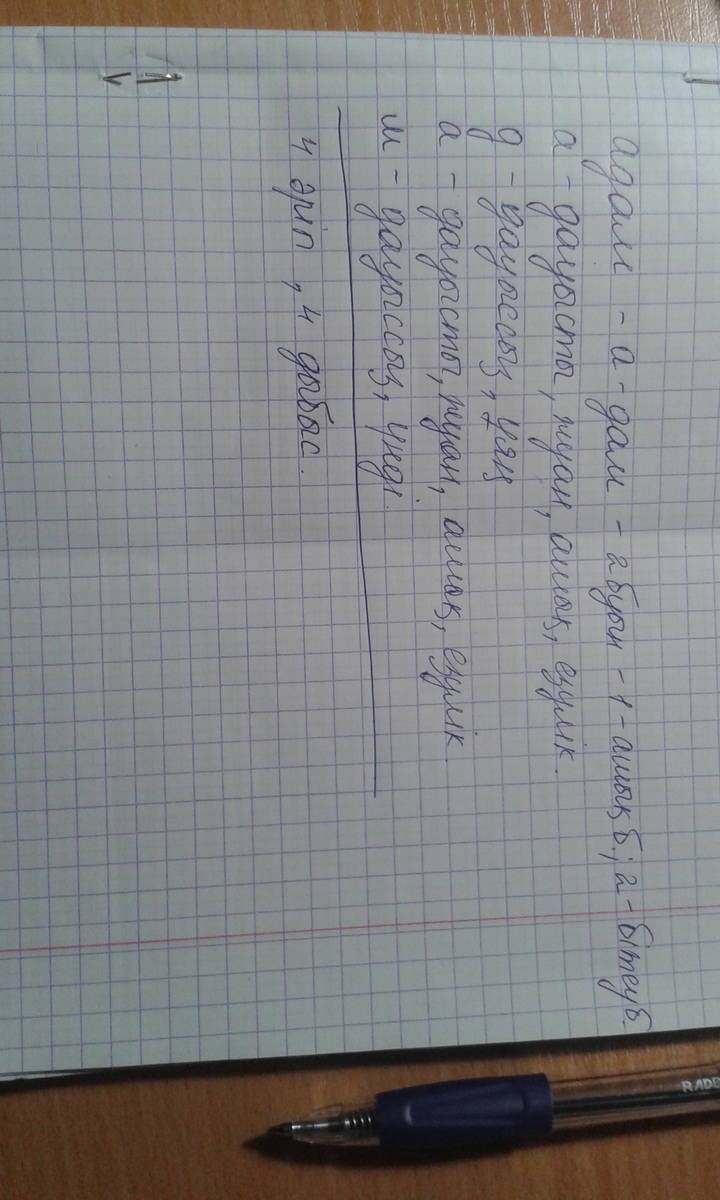 адам - а - дам - 2 буын - 1 - ашық б.; 2 - бітеу б.
а - дауысты, жуан, ашық, езулік.
д - дауыссыз, ұяң
а - дауысты, жуан, ашық, езулік.
м - дауыссыз, үнді.
4 әріп, 4 дыбыс.